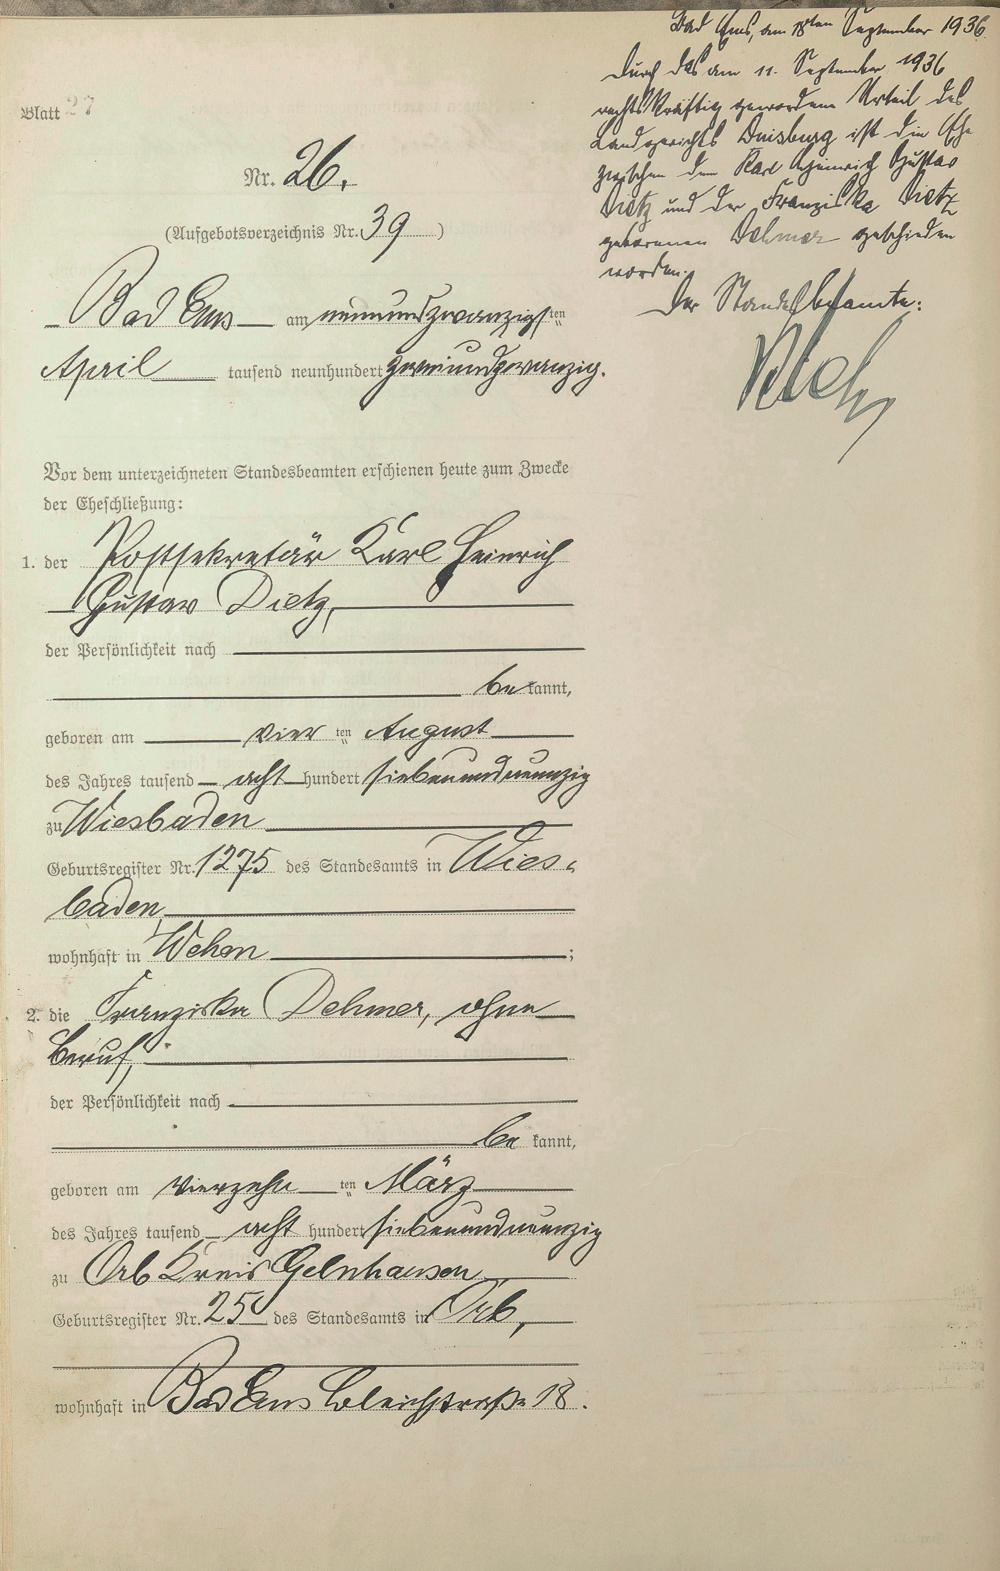 Bad Ems, am 18ten September 1936.
Durch das am 11. September 1936
rechtskräftig gewordene Urteil des
Landgerichts Duisburg ist die Ehe
zwischen dem Karl Heinrich Gustav
Dietz und der Franziska Dietz
geborenen Dehmer geschieden
worden.
Der Standesbeamte:
Blatt 27
Nr. 26.
(Aufgebotsverzeichnis Nr. 39 )
Bad Ems am neunundzwanzigsten
April tausend neunhundert zweiundzwanzig.
Vor dem unterzeichneten Standesbeamten erschienen heute zum Zwecke
der Eheschließung:
1. der Postsekretär Karl Heinrich
Gustav Dietz,
der Persönlichkeit nach
bekannt,
geboren am vierten August
des Jahres tausend acht hundert siebenundneunzig
zu Wiesbaden
Geburtsregister Nr. 1275 des Standesamts in Wies-
baden,
wohnhaft in Wehen ;
2. die Franziska Dehmer, ohne
Beruf,
der Persönlichkeit nach
be kannt,
geboren am vierzehnten März
des Jahres tausend acht hundert siebenundneunzig
zu Orb Kreis Gelnhausen
Geburtsregister Nr. 25 des Standesamts in Orb,
wohnhaft in Bad Ems Bleichstraße 18.